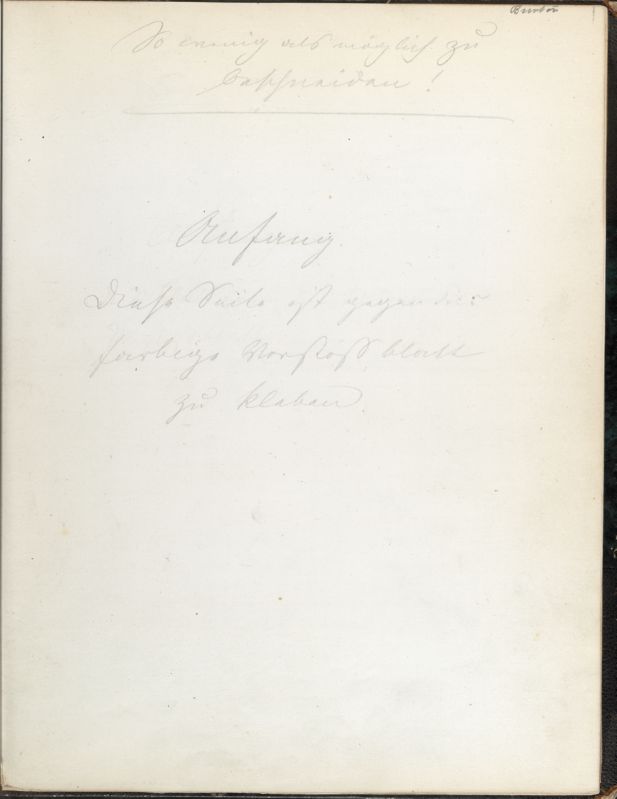 So wenig als möglich zu
beschneiden!
Anfang.
Diese Seite ist gegen das
farbige Vorstoß blatt
zu kleben.